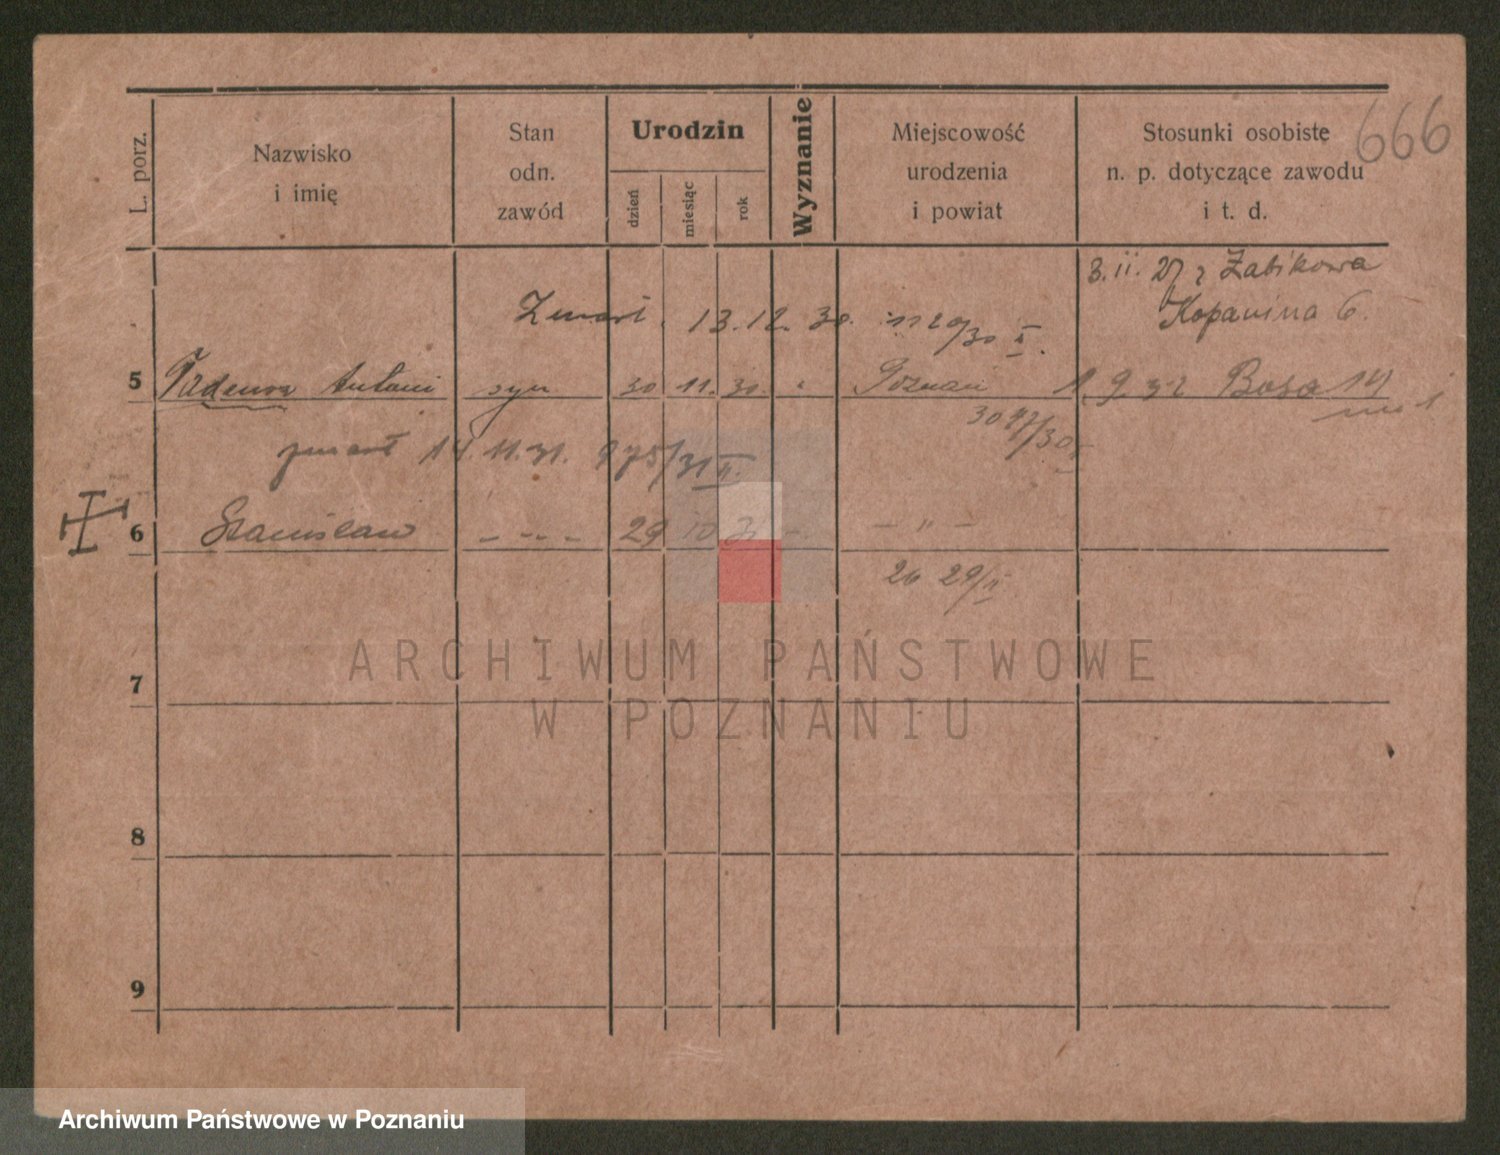 666
L. porz.
Nazwisko
i imię
Stan
odn.
zawód
Urodzin
dzień
miesiąc
rok
Wyznanie
Miejscowość
urodzenia
i powiat
Stosunki osobiste
n. p. dotyczące zawodu
i t. d.
3. ii. 27 z Żabikowa
Kopanina 6.
Zmarł. 13.12. 30. 1120/30 II.
5 Tadeusz Antoni syn 30 11. 30. " Poznań 1. 9. 31 Bosa 14
3047/30
zmarł 14 11. 31. 975/31 II.
6 Stanisław - " - 29 10 31 - - " -
26 29/II
7
8
9
ARCHIWUM PAŃSTWOWE
W POZNANIU
Archiwum Państwowe w Poznaniu